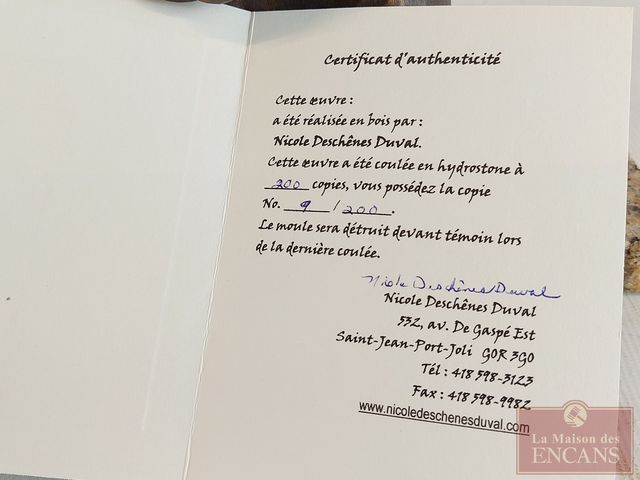 Certificat d'authenticité
Cette œuvre :
a été réalisée en bois par :
Nicole Deschênes Duval.
Cette œuvre a été coulée en hydrostone à
200 copies, vous possédez la copie
No. 9 / 200.
Le moule sera détruit devant témoin lors
de la dernière coulée.
Nicole Deschênes Duval
Nicole Deschênes Duval
532, av. De Gaspé Est
Saint-Jean-Port-Joli G0R 3G0
Tél : 418 598-3123
Fax : 418 598-9982
www.nicoledeschenesduval.com
La Maison des
ENCANS